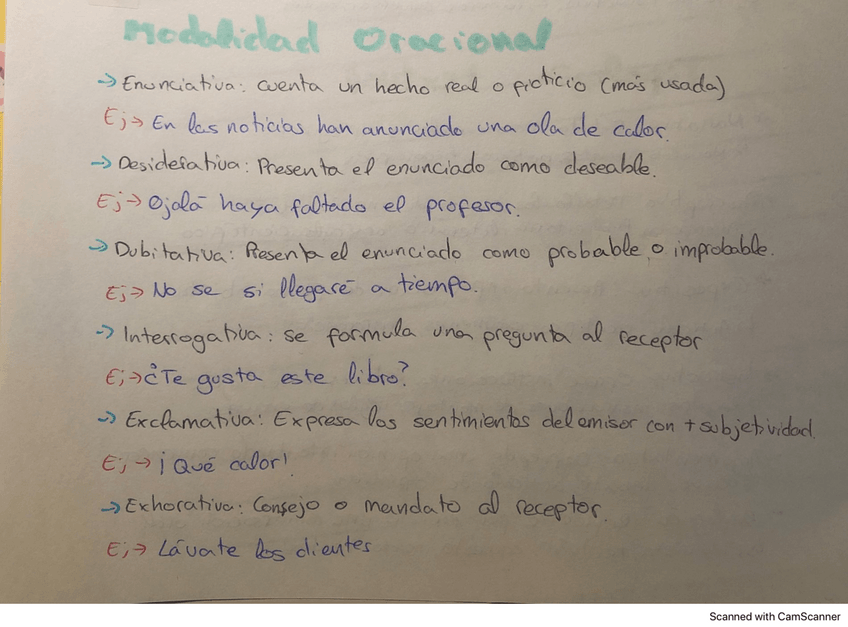 Modalidad Oracional
→ Enunciativa: cuenta un hecho real o ficticio (más usada)
Ej→ En las noticias han anunciado una ola de calor.
→ Desiderativa: Presenta el enunciado como deseable.
Ej→ Ojalá haya faltado el profesor.
→ Dubitativa: Presenta el enunciado como probable o improbable.
Ej→ No se si llegaré a tiempo.
→ Interrogativa: se formula una pregunta al receptor
Ej→ ¿Te gusta este libro?
→ Exclamativa: Expresa los sentimientos del emisor con + subjetividad.
Ej→ ¡Qué calor!
→ Exhorativa: Consejo o mandato al receptor.
Ej→ Lávate los dientes
Scanned with CamScanner